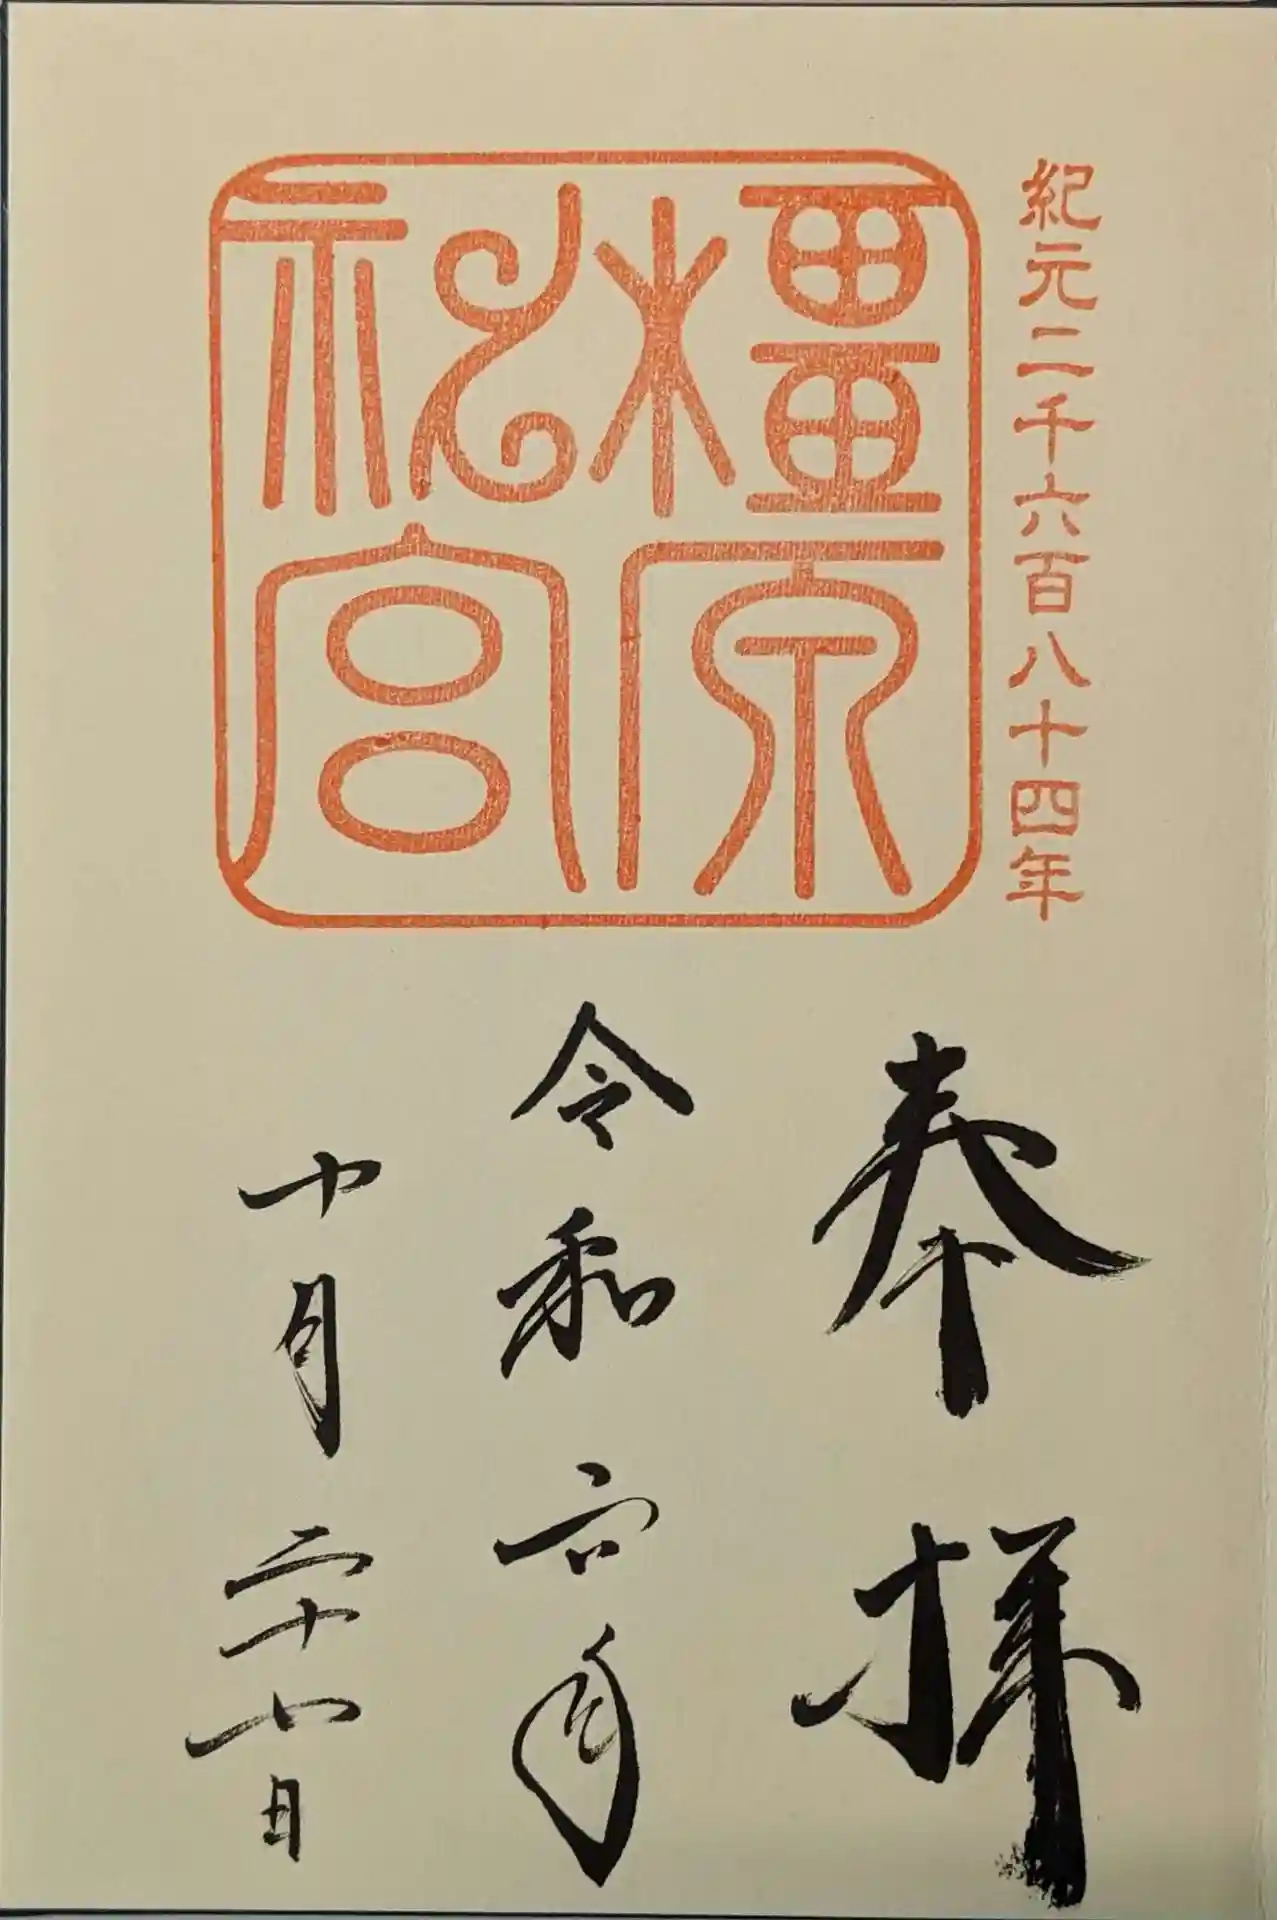 紀元二千六百八十四年
橿原
神宮
奉拝
令和六年
十月二十七日